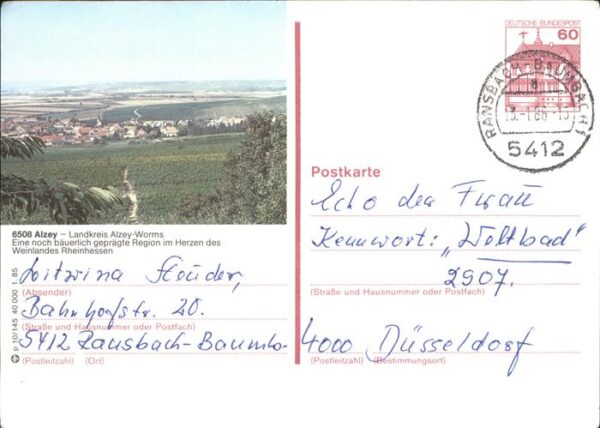 DEUTSCHE BUNDESPOST
60
RANSBACH-BAUMBACH 1
5412
6508 Alzey – Landkreis Alzey-Worms
Eine noch bäuerlich geprägte Region im Herzen des
Weinlandes Rheinhessen
(Absender)
Bahnhofstr. 20.
(Straße und Hausnummer oder Postfach)
5412 Ransbach-Baumb.
(Postleitzahl) (Ort)
p 10/145 40 000 1.85
Postkarte
Echo der Frau
Kennwort: „Weltbad"
2907.
(Straße und Hausnummer oder Postfach)
4000 Düsseldorf
(Postleitzahl) (Bestimmungsort)